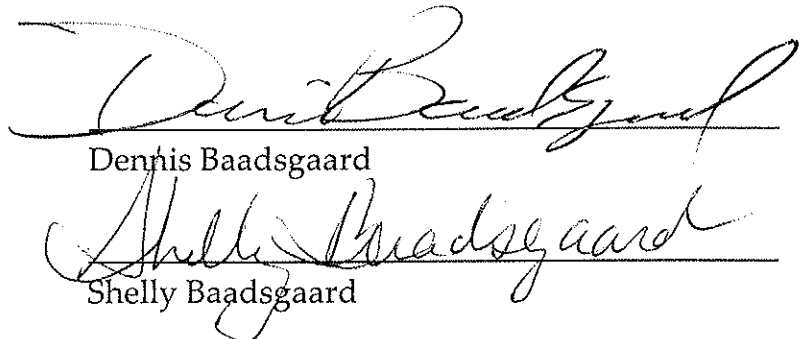 Dennis Baadsgaard
Dennis Baadsgaard
Shelly Baadsgaard
Shelly Baadsgaard